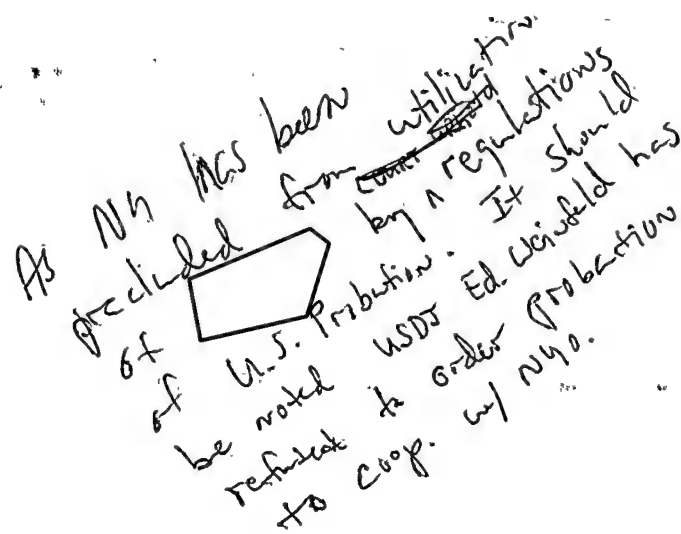 As NY has been
precluded from utilization
of by regulations
of U.S. Probation. It should
be noted USDJ Ed. Weinfeld has
refused to order probation
to coop. w/ NYO.